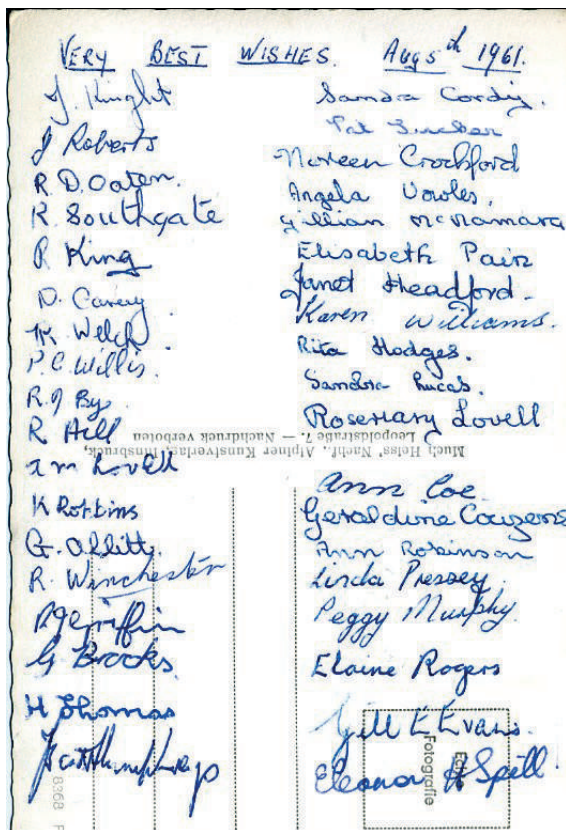 VERY BEST WISHES. Aug 5th 1961.
J. Knight
J Roberts
R. D. Oaten.
R. Southgate
R King
D. Carey
K. Welch.
P. C. Willis.
R. J. Bye
R Hill
I m Lovell
K Robbins
G. Ollitt.
R. Winchester
Griffin
G Brooks.
H Thomas
Humphreys
Sandra Cordiy.
Pat
Noreen Crockford
Angela Vowles.
Gillian McNamara
Elisabeth Pain
Janet Headford.
Karen Williams.
Rita Hodges.
Sandra Lucas.
Rosemary Lovell
Ann Coe.
Geraldine Couzens
Ann Robinson
Linda Pressey.
Peggy Murphy.
Elaine Rogers
Gill E Evans.
Eleanor H Spill
Much Heiss' Nachf., Alpiner Kunstverlag, Innsbruck,
Leopoldstraße 7. — Nachdruck verboten
Echte
Fotografie
8368